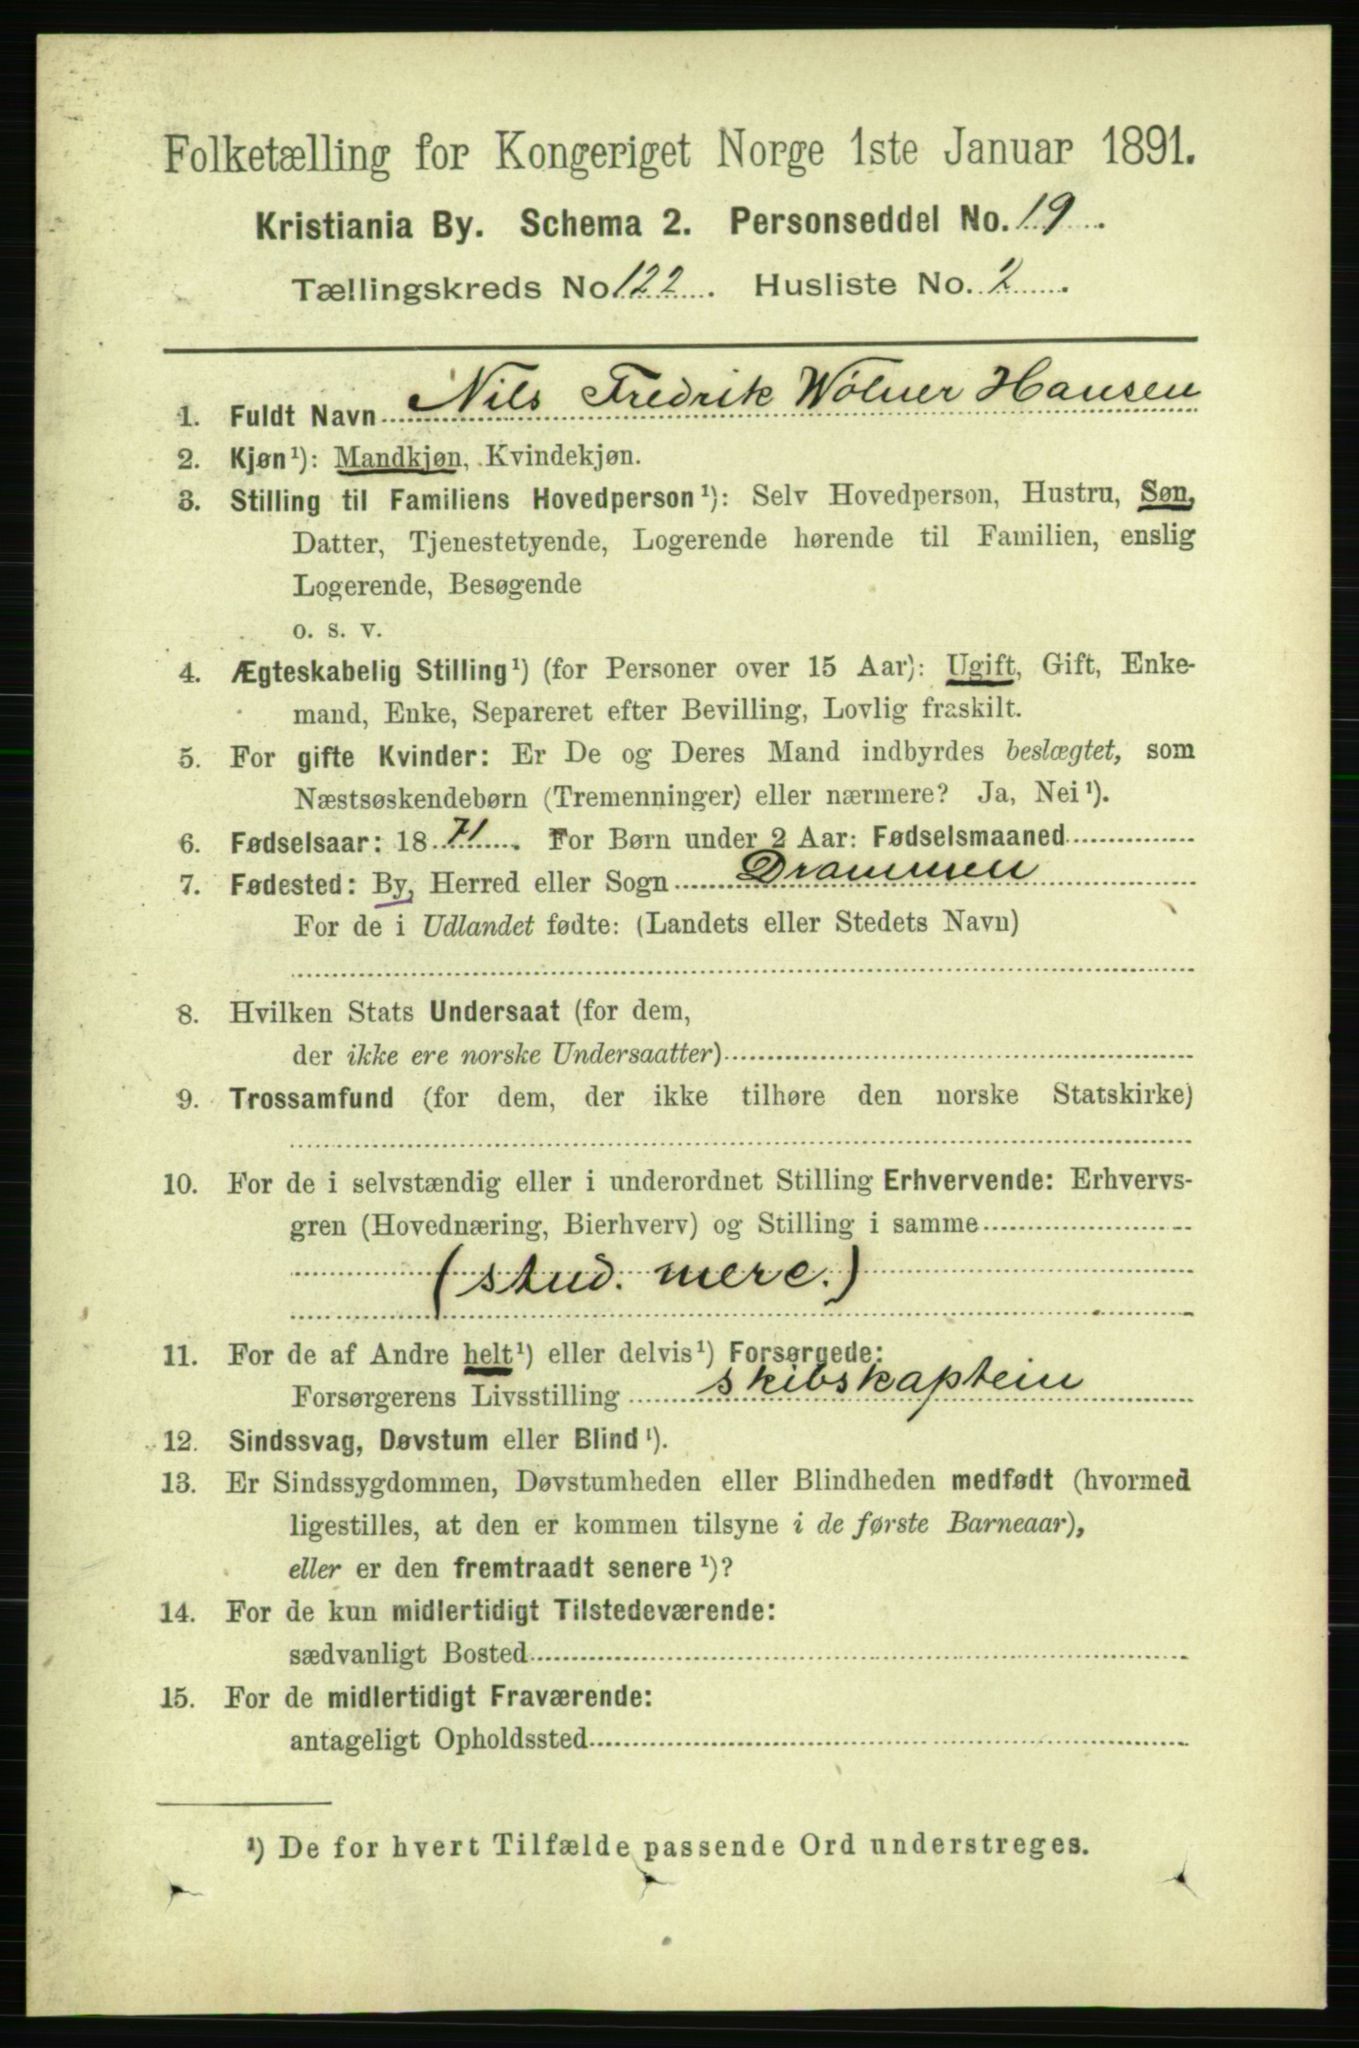 Folketælling for Kongeriget Norge 1ste Januar 1891.
Kristiania By. Schema 2. Personseddel No. 19.
Tællingskreds No 122. Husliste No. 2.
1. Fuldt Navn Nils Fredrik Wölner Hansen
2. Kjøn¹): Mandkjøn, Kvindekjøn.
3. Stilling til Familiens Hovedperson¹): Selv Hovedperson, Hustru, Søn,
Datter, Tjenestetyende, Logerende hørende til Familien, enslig
Logerende, Besøgende
o. s. v.
4. Ægteskabelig Stilling¹) (for Personer over 15 Aar): Ugift, Gift, Enke-
mand, Enke, Separeret efter Bevilling, Lovlig fraskilt.
5. For gifte Kvinder: Er De og Deres Mand indbyrdes beslægtet, som
Næstsøskendebørn (Tremenninger) eller nærmere? Ja, Nei¹).
6. Fødselsaar: 1871. For Børn under 2 Aar: Fødselsmaaned
7. Fødested: By, Herred eller Sogn Drammen
For de i Udlandet fødte: (Landets eller Stedets Navn)
8. Hvilken Stats Undersaat (for dem,
der ikke ere norske Undersaatter)
9. Trossamfund (for dem, der ikke tilhøre den norske Statskirke)
10. For de i selvstændig eller i underordnet Stilling Erhvervende: Erhvervs-
gren (Hovednæring, Bierhverv) og Stilling i samme
(stud. merc.)
11. For de af Andre helt¹) eller delvis¹) Forsørgede:
Forsørgerens Livsstilling skibskaptein
12. Sindssvag, Døvstum eller Blind¹).
13. Er Sindssygdommen, Døvstumheden eller Blindheden medfødt (hvormed
ligestilles, at den er kommen tilsyne i de første Barneaar),
eller er den fremtraadt senere¹)?
14. For de kun midlertidigt Tilstedeværende:
sædvanligt Bosted
15. For de midlertidigt Fraværende:
antageligt Opholdssted
¹) De for hvert Tilfælde passende Ord understreges.